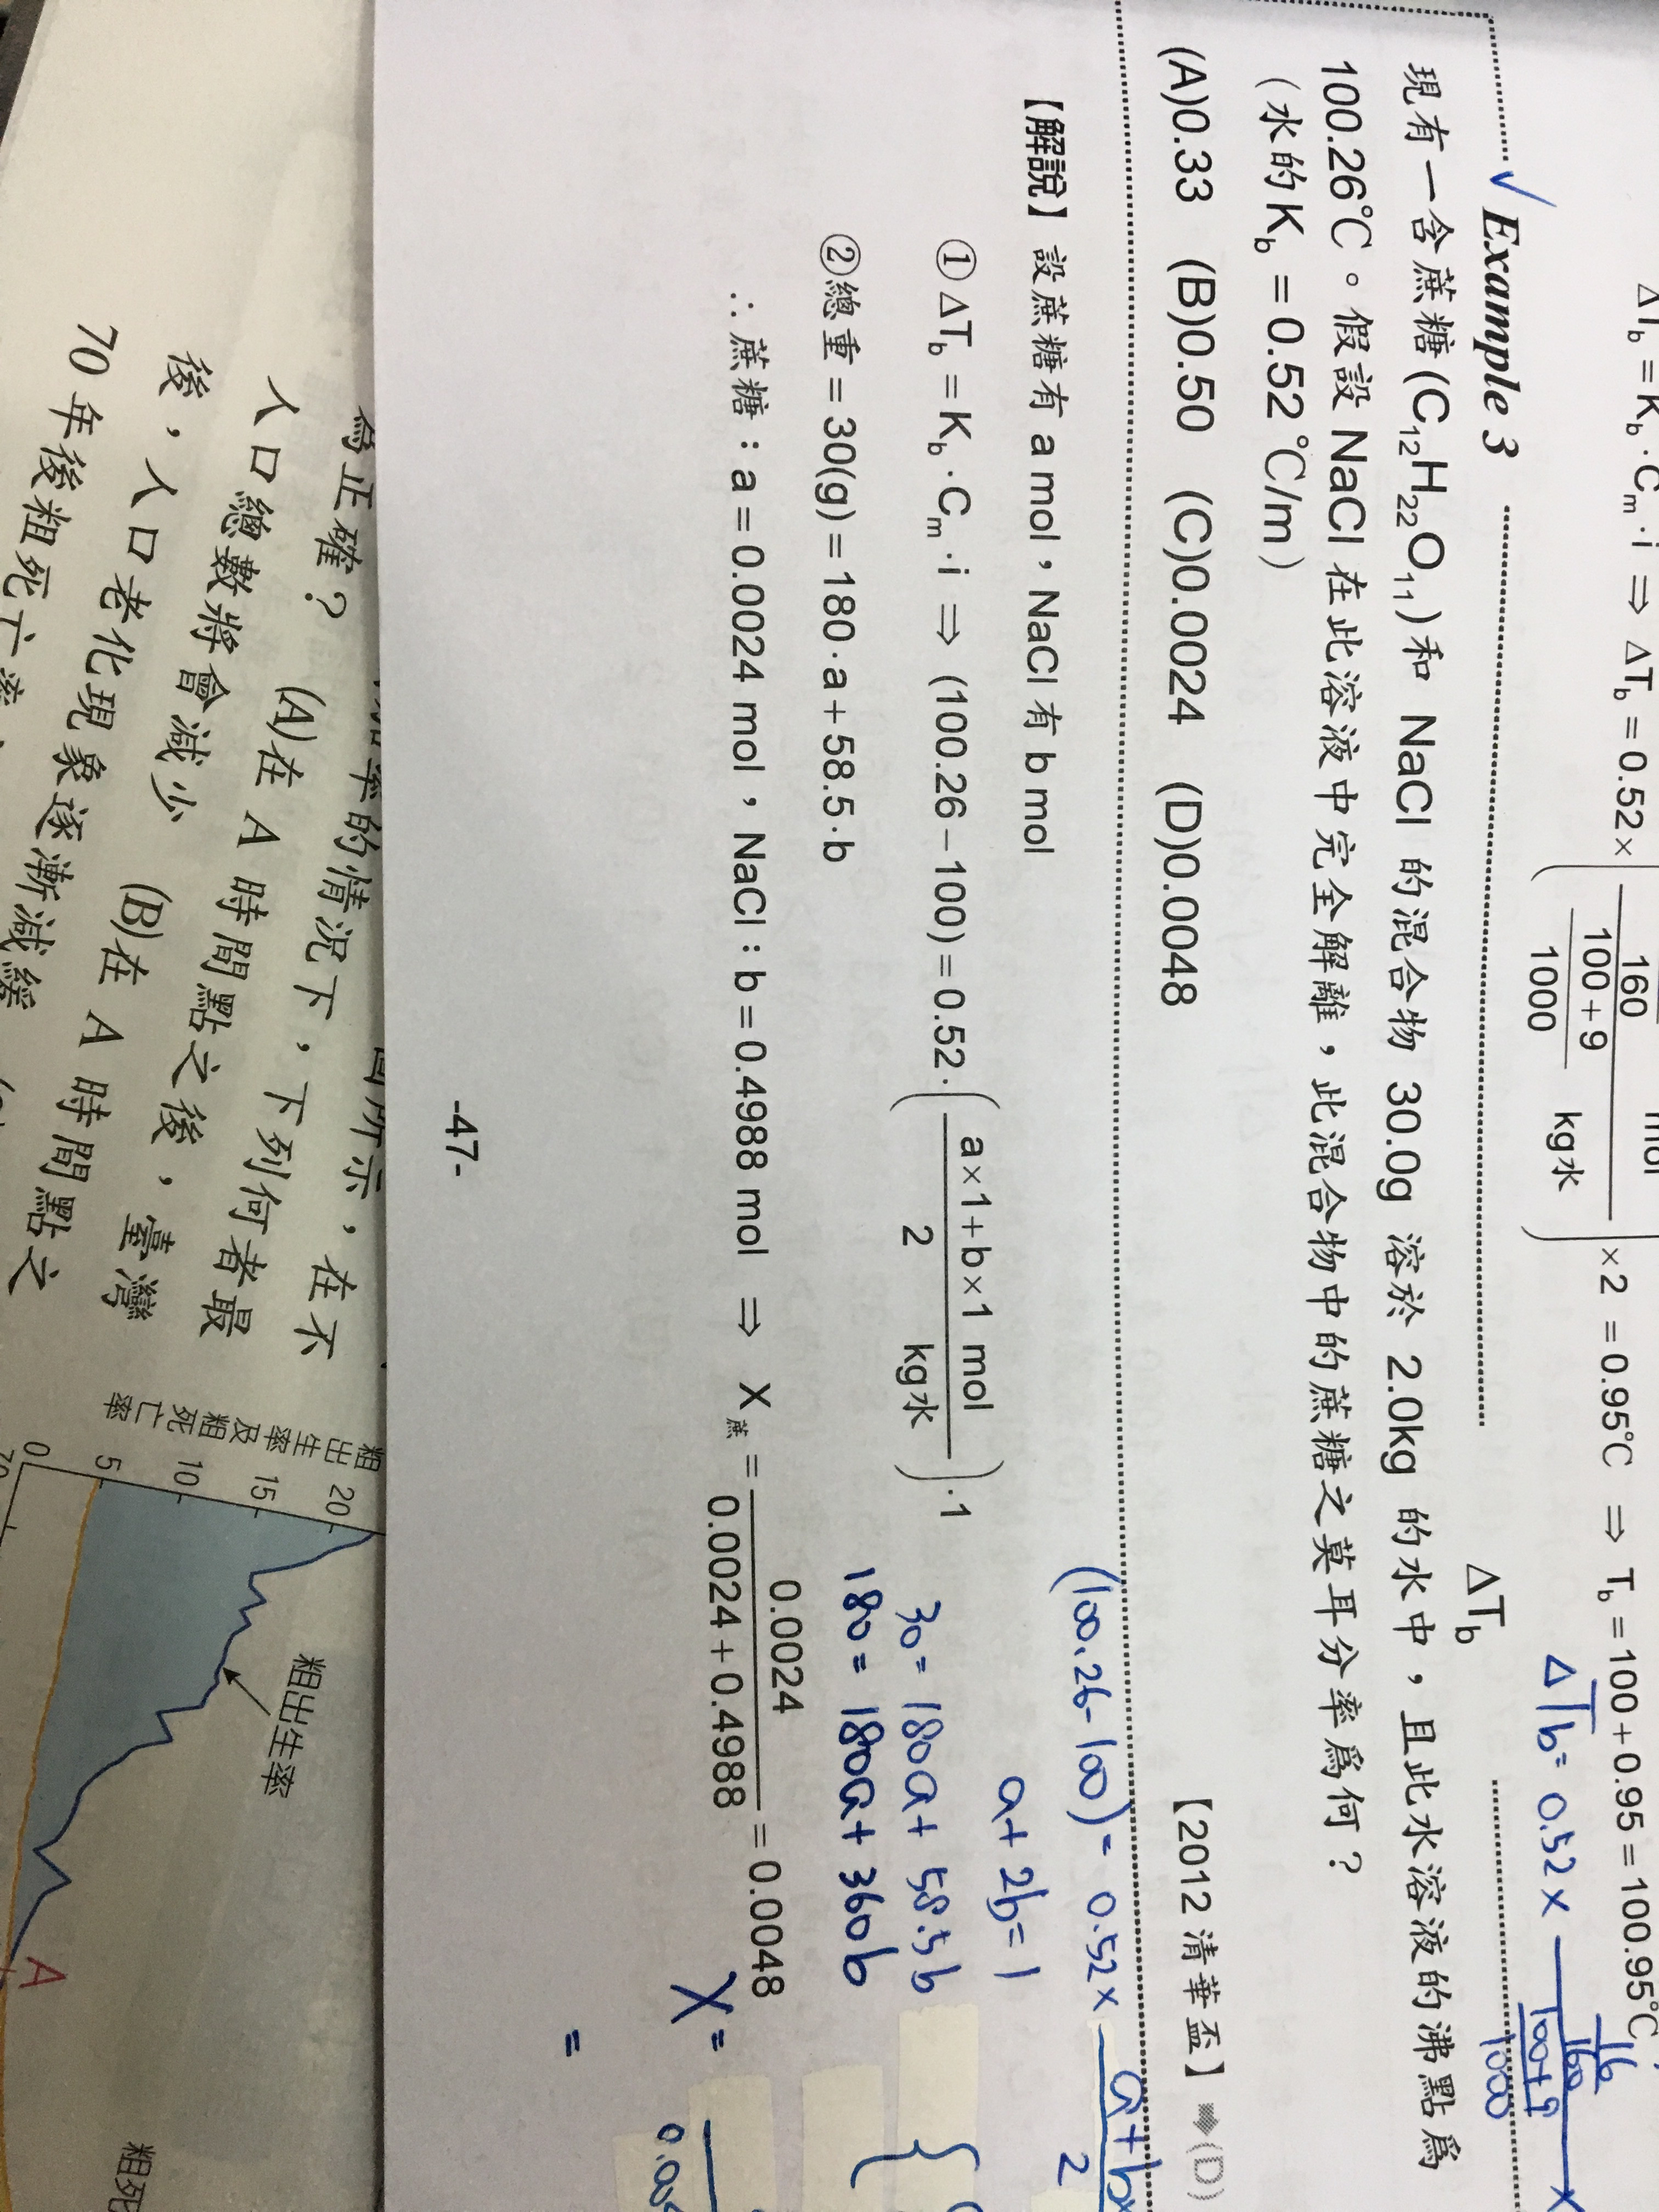 ΔT_b = K_b · C_m · i ⇒ ΔT_b = 0.52 × ( 160 / (100 + 9) / 1000 kg水 ) × 2 = 0.95℃ ⇒ T_b = 100 + 0.95 = 100.95℃
ΔTb = 0.52 ×
16
160
100+9
1000
✓ Example 3
ΔT_b
現有一含蔗糖 (C₁₂H₂₂O₁₁) 和 NaCl 的混合物 30.0g 溶於 2.0kg 的水中，且此水溶液的沸點為
100.26℃。假設 NaCl 在此溶液中完全解離，此混合物中的蔗糖之莫耳分率為何？
（水的 K_b = 0.52 ℃/m）
(A)0.33 (B)0.50 (C)0.0024 (D)0.0048 【2012 清華盃】➡(D)
(100.26-100) = 0.52 × a+b× / 2
【解說】設蔗糖有 a mol，NaCl 有 b mol
a + 2b = 1
① ΔT_b = K_b · C_m · i ⇒ (100.26 − 100) = 0.52 · ( a×1 + b×1 mol / 2 kg水 ) · 1
30 = 180a + 58.5b
②總重 = 30(g) = 180 · a + 58.5 · b
180 = 180a + 360b
∴ 蔗糖：a = 0.0024 mol，NaCl：b = 0.4988 mol ⇒ X蔗 = 0.0024 / (0.0024 + 0.4988) = 0.0048
X =
=
-47-
圖所示，在不
率的情況下，下列何者最
為正確？ (A)在 A 時間點之後，臺灣
人口總數將會減少 (B)在 A 時間點之
後，人口老化現象逐漸減緩
70 年後粗死亡率
粗出生率及粗死亡率
20
15
10
5
0
70
粗出生率
粗死
A